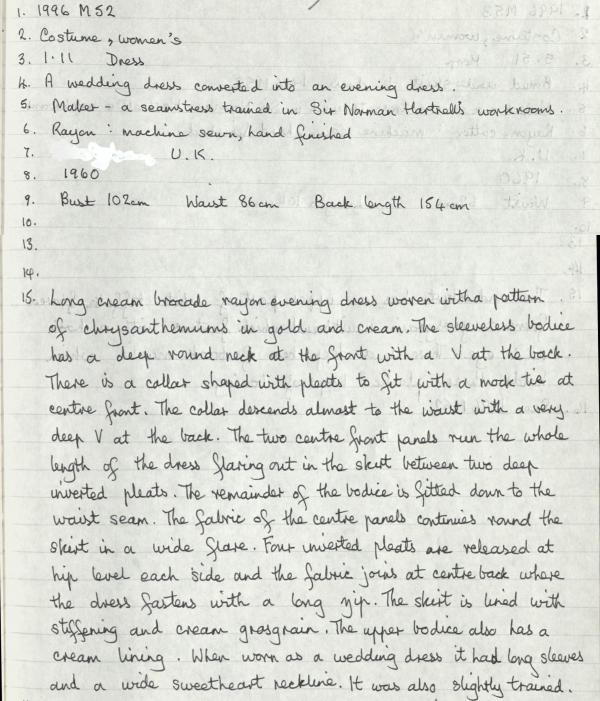 1. 1996 M52
2. Costume, women's
3. 1.11 Dress
4. A wedding dress converted into an evening dress.
5. Maker - a seamstress trained in Sir Norman Hartnell's workrooms.
6. Rayon: machine sewn, hand finished
7. U.K.
8. 1960
9. Bust 102cm Waist 86cm Back length 154cm
10.
13.
14.
15. Long cream brocade rayon evening dress woven with a pattern
of chrysanthemums in gold and cream. The sleeveless bodice
has a deep round neck at the front with a V at the back.
There is a collar shaped with pleats to fit with a mock tie at
centre front. The collar descends almost to the waist with a very
deep V at the back. The two centre front panels run the whole
length of the dress flaring out in the skirt between two deep
inverted pleats. The remainder of the bodice is fitted down to the
waist seam. The fabric of the centre panels continues round the
skirt in a wide flare. Four inverted pleats are released at
hip level each side and the fabric joins at centre back where
the dress fastens with a long zip. The skirt is lined with
stiffening and cream grosgrain. The upper bodice also has a
cream lining. When worn as a wedding dress it had long sleeves
and a wide sweetheart neckline. It was also slightly trained.